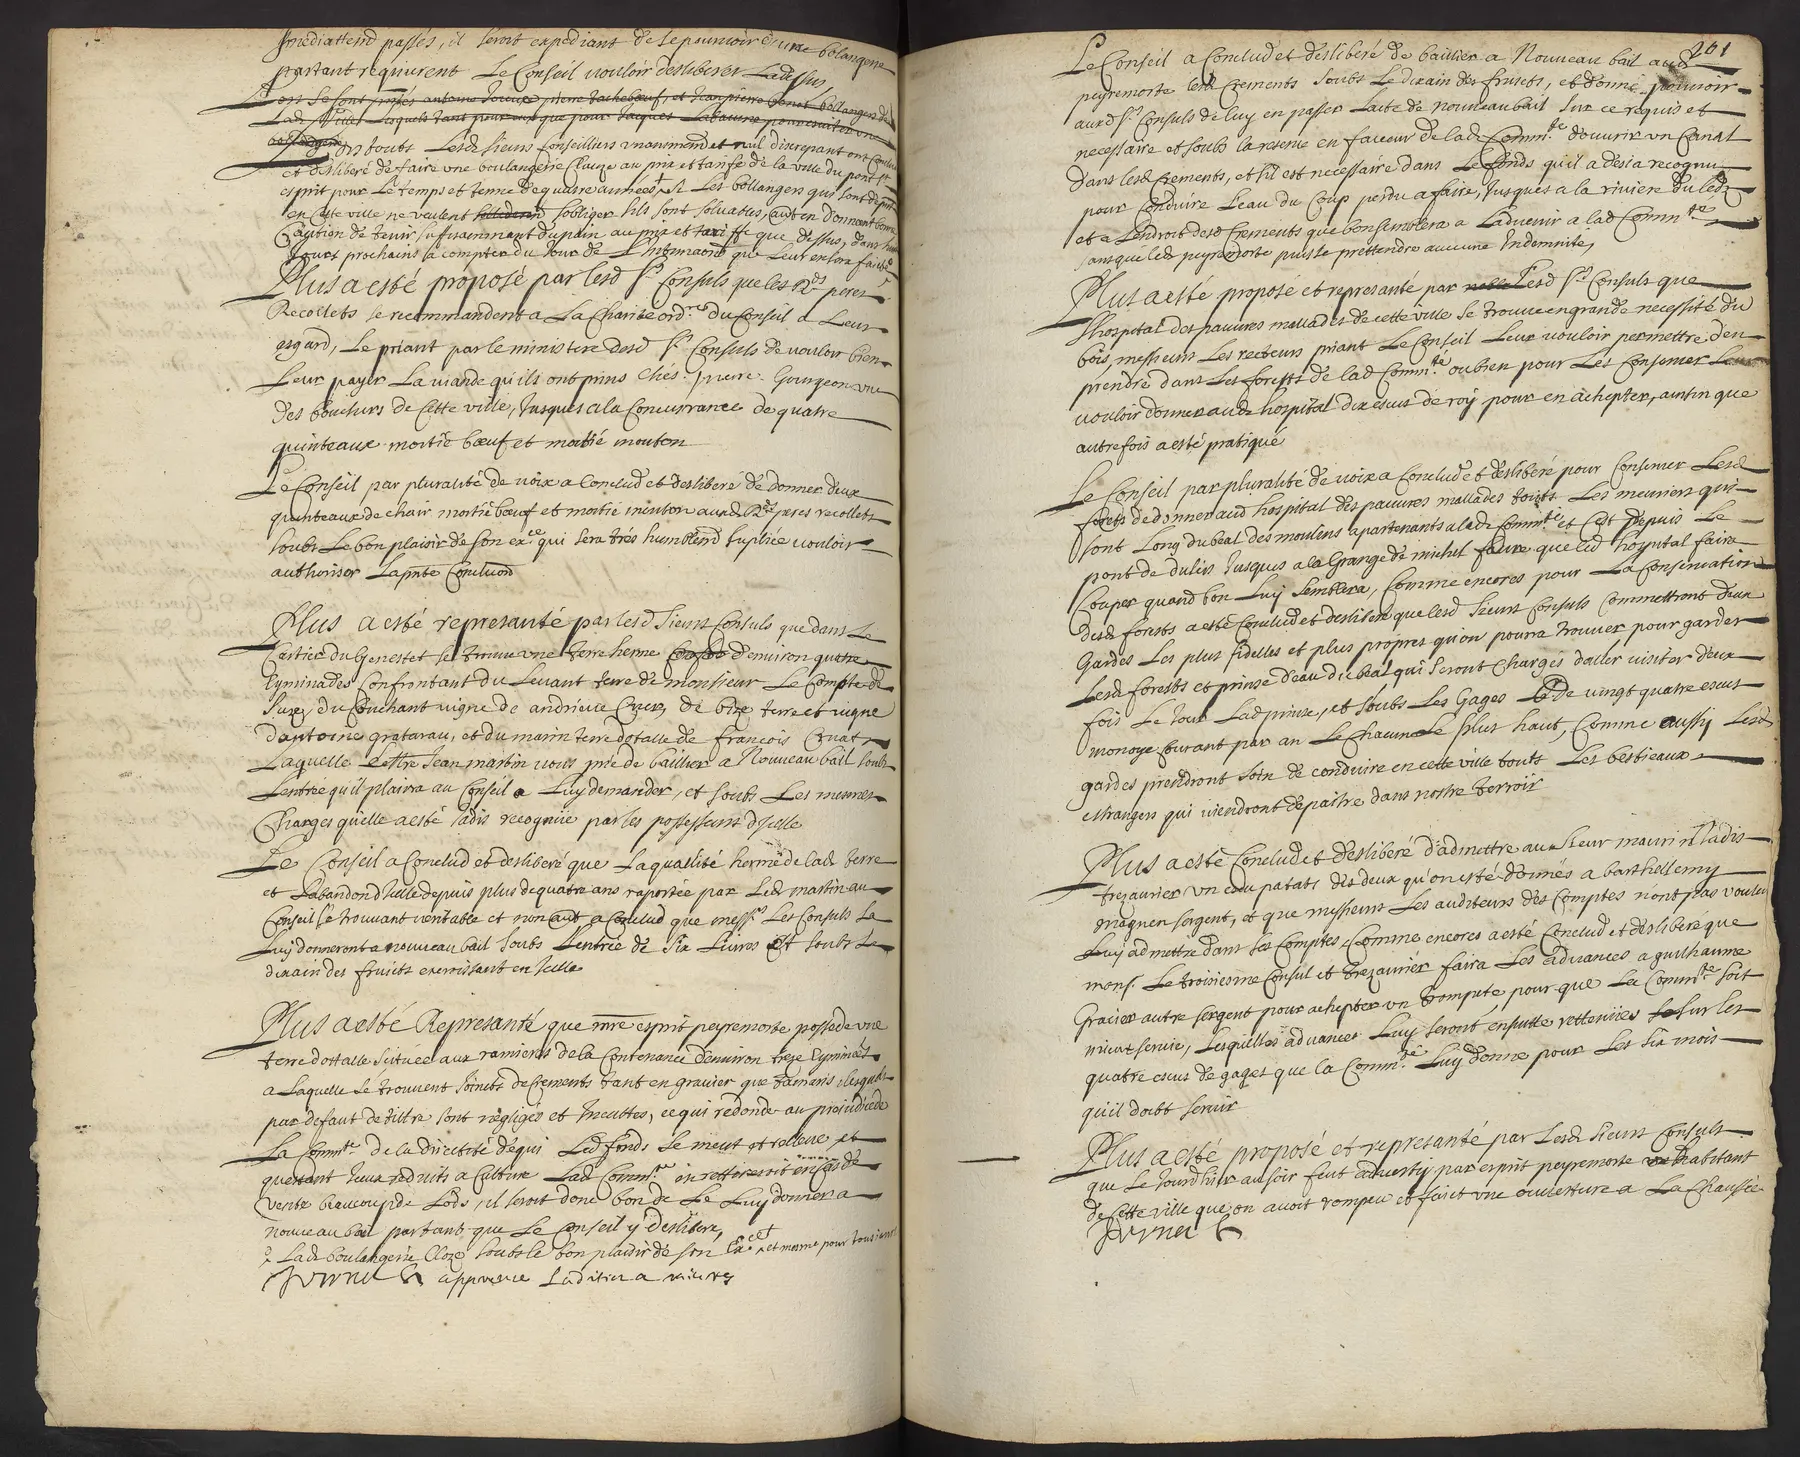 Imediattemd passés, il seroit expediant de se pourvoir d'une bolangerie
partant requirent Le Conseil vouloir desliberer Ladessus,
des touts Lesd sieurs Conseilliers unanimemd et nul discrepant ont conclud
et desliberé de faire une boulangerie Cloze au pris et tariffe de la ville du pont St
esprit pour Le temps et terme de quatre années + si Les bollangers qui sont depnt
en cette ville ne veulent sobliger sils sont solvables, aut en donnant bonne
Caution de tenir sufisamment du pain au pris et tariffe que dessus, dans huit
Jours prochains a compter du Jour de L'Intimaon qui Leur en sera faicte
Plus a esté proposé par lesd Srs Consuls que les Rds peres
Recollets se recommandent a La Charité ordre du Conseil a Leur
esgard, Le priant par le ministere desd Srs Consuls de vouloir bien
Leur payer La viande qu'ils ont prins ches pierre Gourgeon une
des bouchers de Cette ville, Jusques a la Concurrance de quatre
quinteaux moitié bœuf et moitié mouton
Le Conseil par pluralité de voix a Conclud et desliberé de donner deux
quinteaux de chair moitié bœuf et moitié mouton ausd Rds peres recollets
soubs Le bon plaisir de son exce qui sera trés humblemd supliée vouloir
authoriser Lapnte Concluon
Plus a esté representé par lesd Sieurs Consuls que dans Le
Cartier du Genestet se trouve une terre herme d'environ quatre
Eyminades Confrontant du Levant terre de monsieur Le Compte de
Suze, du Couchant vigne de andrieu Crux, de bize terre et vigne
d'antoine gratarau, et du marin terre dotalle de francois Convat
Laquelle Lettre Jean martin vous prie de baillier a Nouveau bail soubs
Lentrée qu'il plaira au Conseil a Luy demander, et soubs Les mesmes
Charges quelle a esté Jadis recognüe par les possesseurs d'Icelle
Le Conseil a Conclud et desliberé que La qualité herme de lad terre
et L'abandond d'Icelle depuis plus de quatre ans raportée par Led martin au
Conseil se trouvant veritable et non aut a Conclud que messrs Les Consuls La
Luy donneront a nouveau bail soubs L'entrée de Six Livres et soubs Le
dixain des fruicts excroissant en Icelle
Plus a esté Representé que mre esprit peyremorte possede une
terre dottalle scituée aux ramieres de la Contenance d'environ treze Eyminées
a Laquelle se trouvent Joincts decrements tant en gravier que tamaris, lesquels
par defaut de tiltre sont negligés et Incultes, ce qui redonde au prejudice de
La Commte de la directité de qui Led fonds se meut et releve et
questant Iceux reduits a Culture Lad Commte en retireroit en cas de
vente beaucoup de Lods, il seroit donc bon de Le Luy donner a
nouveau bail partant que Le Conseil y desliberé,
+ Lad boulangerie Cloze soubs le bon plaisir de son Exce
approuve Ladition a
201
Le Conseil a Conclud et desliberé de baillier a Nouveau bail aud
peyremorte lesd Crements soubs Le dixain des fruicts, et donné pouvoir
ausd Srs Consuls de luy en passer Lacte de nouveau bail sur ce requis et
necessaire et soubs la reserve en faveur de lad Commte d'ouvrir un Canal
dans lesd Crements, et s'il est necessaire dans Le fonds qu'il a desia recognu
pour Conduire L'eau du Coup perdu a faire, Jusques a la riviere du lèz
et a Lendroit desd Crements que bon semblera a Ladvenir a lad Commte
sans que led peyremorte puisse prettendre aucune Indemnité,
Plus a esté proposé et representé par lesd Srs Consuls que
Lhospital des pauvres mallades de cette ville se trouve en grande necessité du
bois, messieurs Les recteurs priant Le Conseil Leur vouloir permettre d'en
prendre dans Les forests de lad Commte ou bien pour Les Conserver Leur
vouloir donner aud hospital dix escus de roy pour en achepter, ainsin que
autrefois a esté pratiqué
Le Conseil par pluralité de voix a Conclud et desliberé pour Conserver Lesd
forets de donner aud hospital des pauvres mallades touts Les meuriers qui
sont Long du béal des moulins apartenants a lad Commte et C'est depuis Le
pont de dulin Jusques a la Grange de michel faure que led hospital faire
Couper quand bon Luy Semblera, Comme encores pour La Conservation
desd forests a esté Conclud et desliberé que lesd Sieurs Consuls Commettront deux
Gardes Les plus fidelles et plus propres qu'on pourra trouver pour garder
Lesd forests et prinse d'eau du béal qui seront Chargés d'aller visiter deux
fois Le Jour Lad prinse, et soubs Les Gages de vingt quatre escus
monoye courant par an Le chacun Le plus haut, Comme aussy Lesd
gardes prendront soin de conduire en cette ville touts Les bestieaux
estrangers qui viendront depaitre dans nostre terroir
Plus a esté Conclud et desliberé d'admettre au Sieur maurin Jadis
trezaurier un escu patats des deux qu'on esté donnés a barthellemy
magnen sergent, et que messieurs Les auditeurs des Comptes n'ont pas voulu
Luy admettre dans ses Comptes, Comme encores a esté Conclud et desliberé que
monsr Le troisiesme Consul et trezaurier faira Les advances a guilhaume
Gracier autre sergent pour achepter un trompete pour que La Commte soit
mieux servie, Lesquelles advances Luy seront ensuitte rettenües sur les
quatre escus de gages que la Commte Luy donne pour Les six mois
qu'il doibt servir
Plus a esté proposé et representé par Lesd Sieurs Consuls
que Le Jourdhier au soir feut adverty par esprit peyremorte habitant
de Cette ville que on avoit rompeu et faict une ouverture a La Chaussée